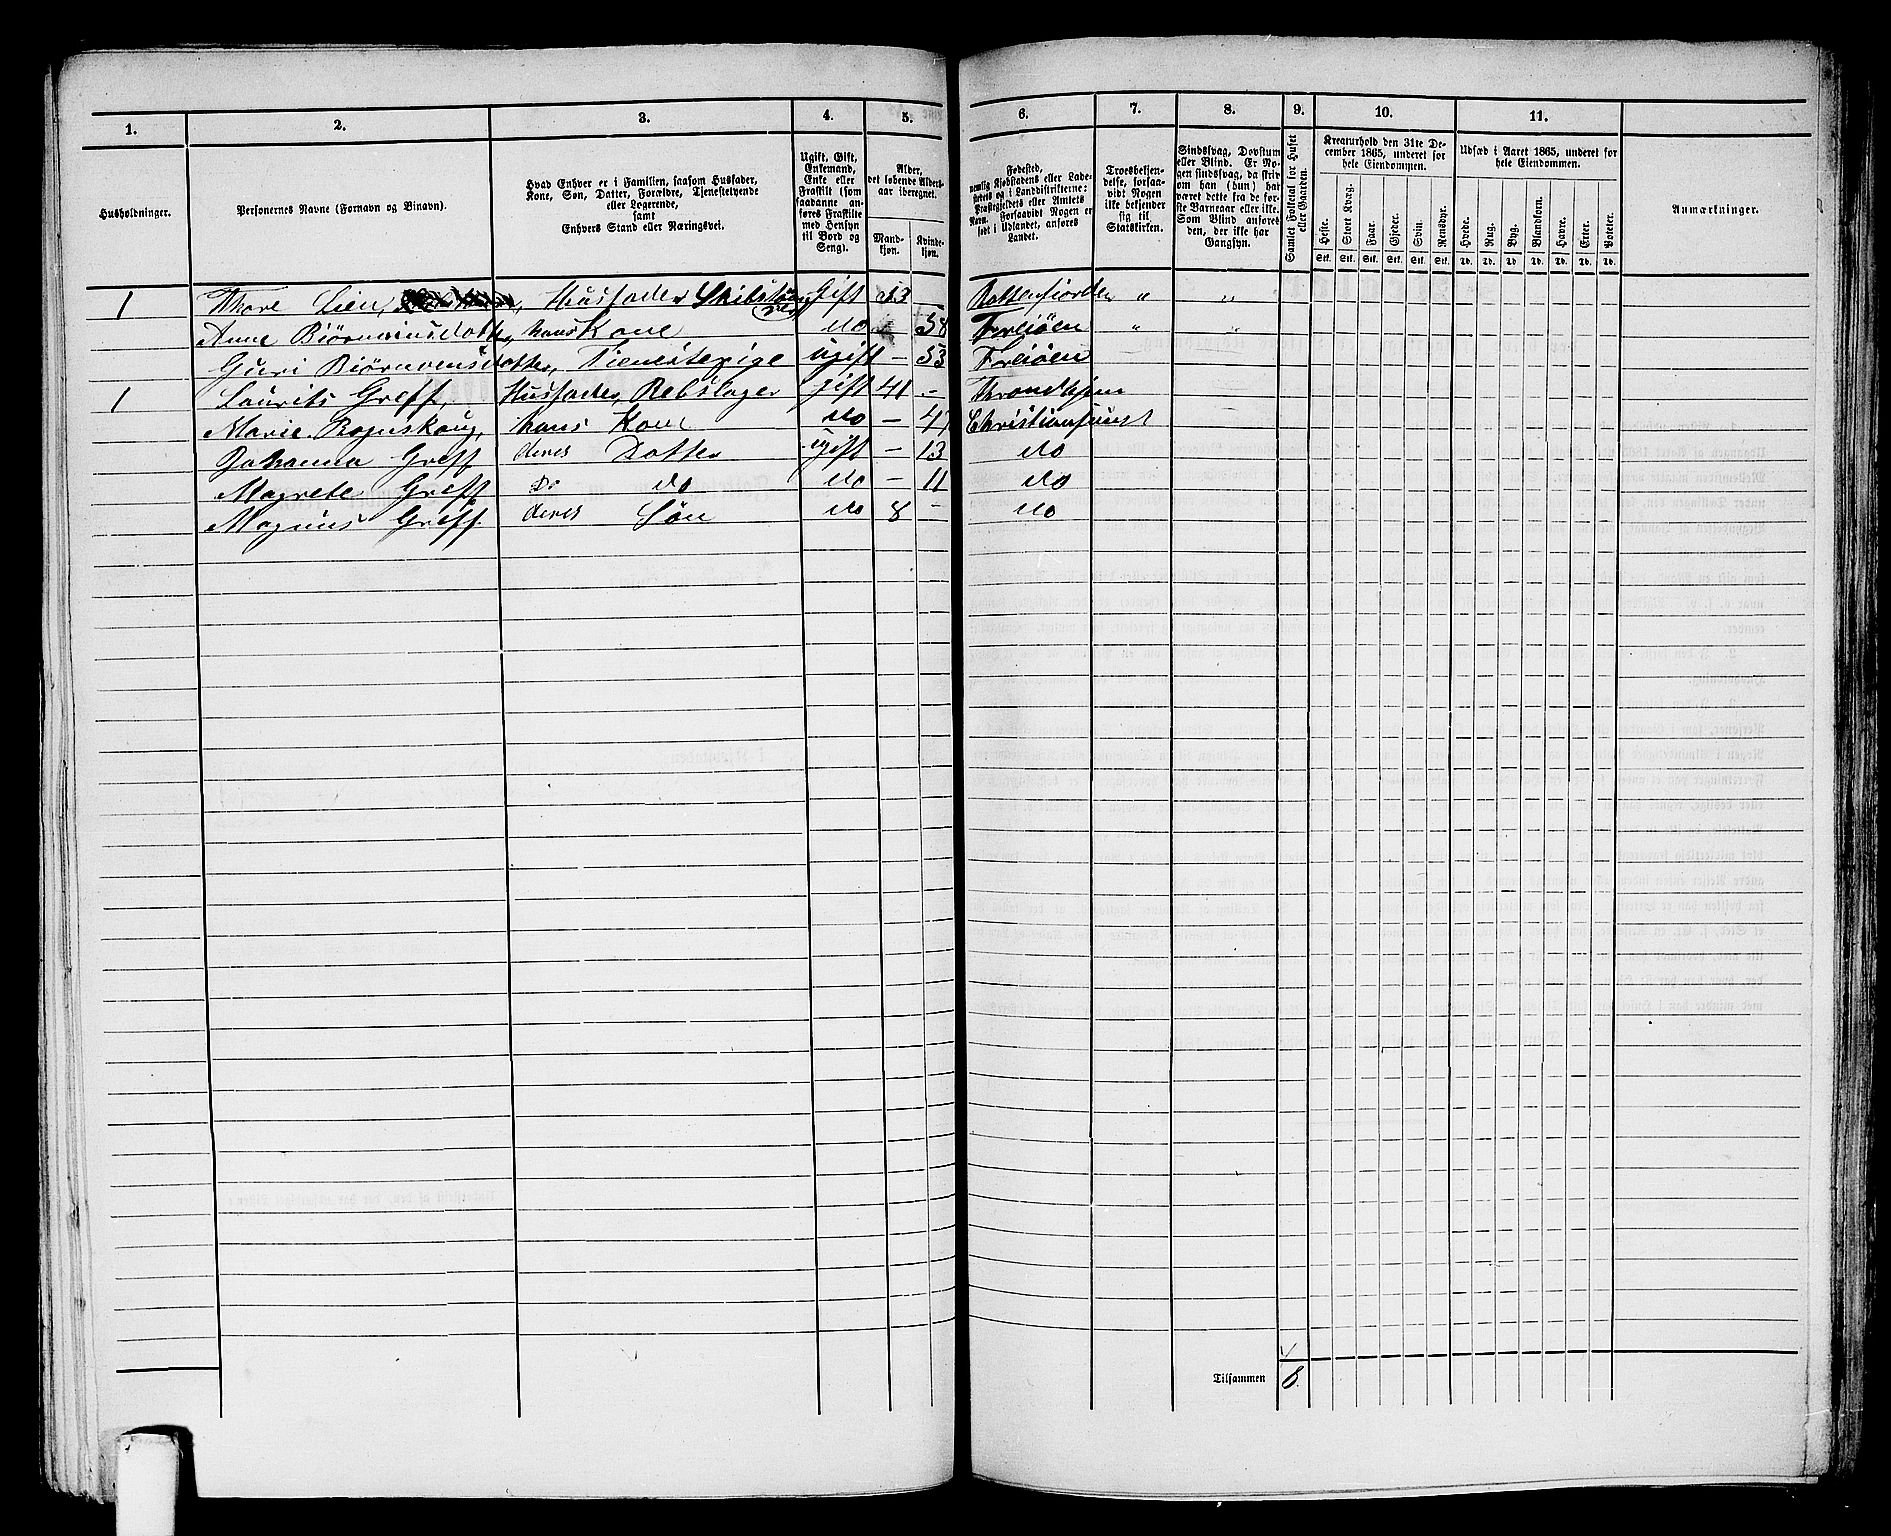 1. 2. 3. 4. 5. 6. 7. 8. 9. 10. 11.
Husholdninger.
Personernes Navne (Fornavn og Binavn).
Hvad Enhver er i Familien, saasom Husfader,
Kone, Søn, Datter, Forældre, Tjenestetyende
eller Logerende,
samt
Enhvers Stand eller Næringsvei.
Ugift, Gift,
Enkemand,
Enke eller
Fraskilt (som
saadanne an-
føres Fraskilte
med Hensyn
til Bord og
Seng).
Alder,
det løbende Alders-
aar iberegnet.
Mand-
kjøn.
Kvinde-
kjøn.
Fødested,
nemlig Kjøbstadens eller Lade-
stedets og i Landdistrikterne:
Præstegjeldets eller Amtets
Navn. Forsaavidt Nogen er
født i Udlandet, anføres
Landet.
Troesbekjen-
delse, forsaa-
vidt Nogen
ikke bekjender
sig til
Statskirken.
Sindssvag, Døvstum
eller Blind. Er No-
gen sindssvag, da skriv
om han (hun) har
været dette fra de før-
ste Barneaar eller ikke.
Som Blind anføres
den, der ikke har
Gangsyn.
Samlet Folketal for Huset
eller Gaarden.
Kreaturhold den 31te De-
cember 1865, underet for
hele Eiendommen.
Heste. Stort Kvæg. Faar. Gjeder. Svin. Rensdyr.
Stk. Stk. Stk. Stk. Stk. Stk.
Udsæd i Aaret 1865, underet for
hele Eiendommen.
Hvede. Rug. Byg. Blandkorn. Havre. Erter. Poteter.
Td. Td. Td. Td. Td. Td. Td.
Anmærkninger.
1 Thore Lien, Husfader Gift 53 — " "
Anne Biørnvinsdatter, hans Kone do 58 Freiøen " "
Guri Biørnvensdatter, Tienestepige ugift — 53 Freiøen
1 Laurits Greff, Husfader, Rebslager gift 41 - Throndhjem
Marie Rognskoug, hans Kone do — 47 Christiansund
Johanna Greff deres Datter ugift — 13 do
Magrete Greff Do do do — 11 do
Magnus Greff. deres Søn do 8 — do
Tilsammen 8.